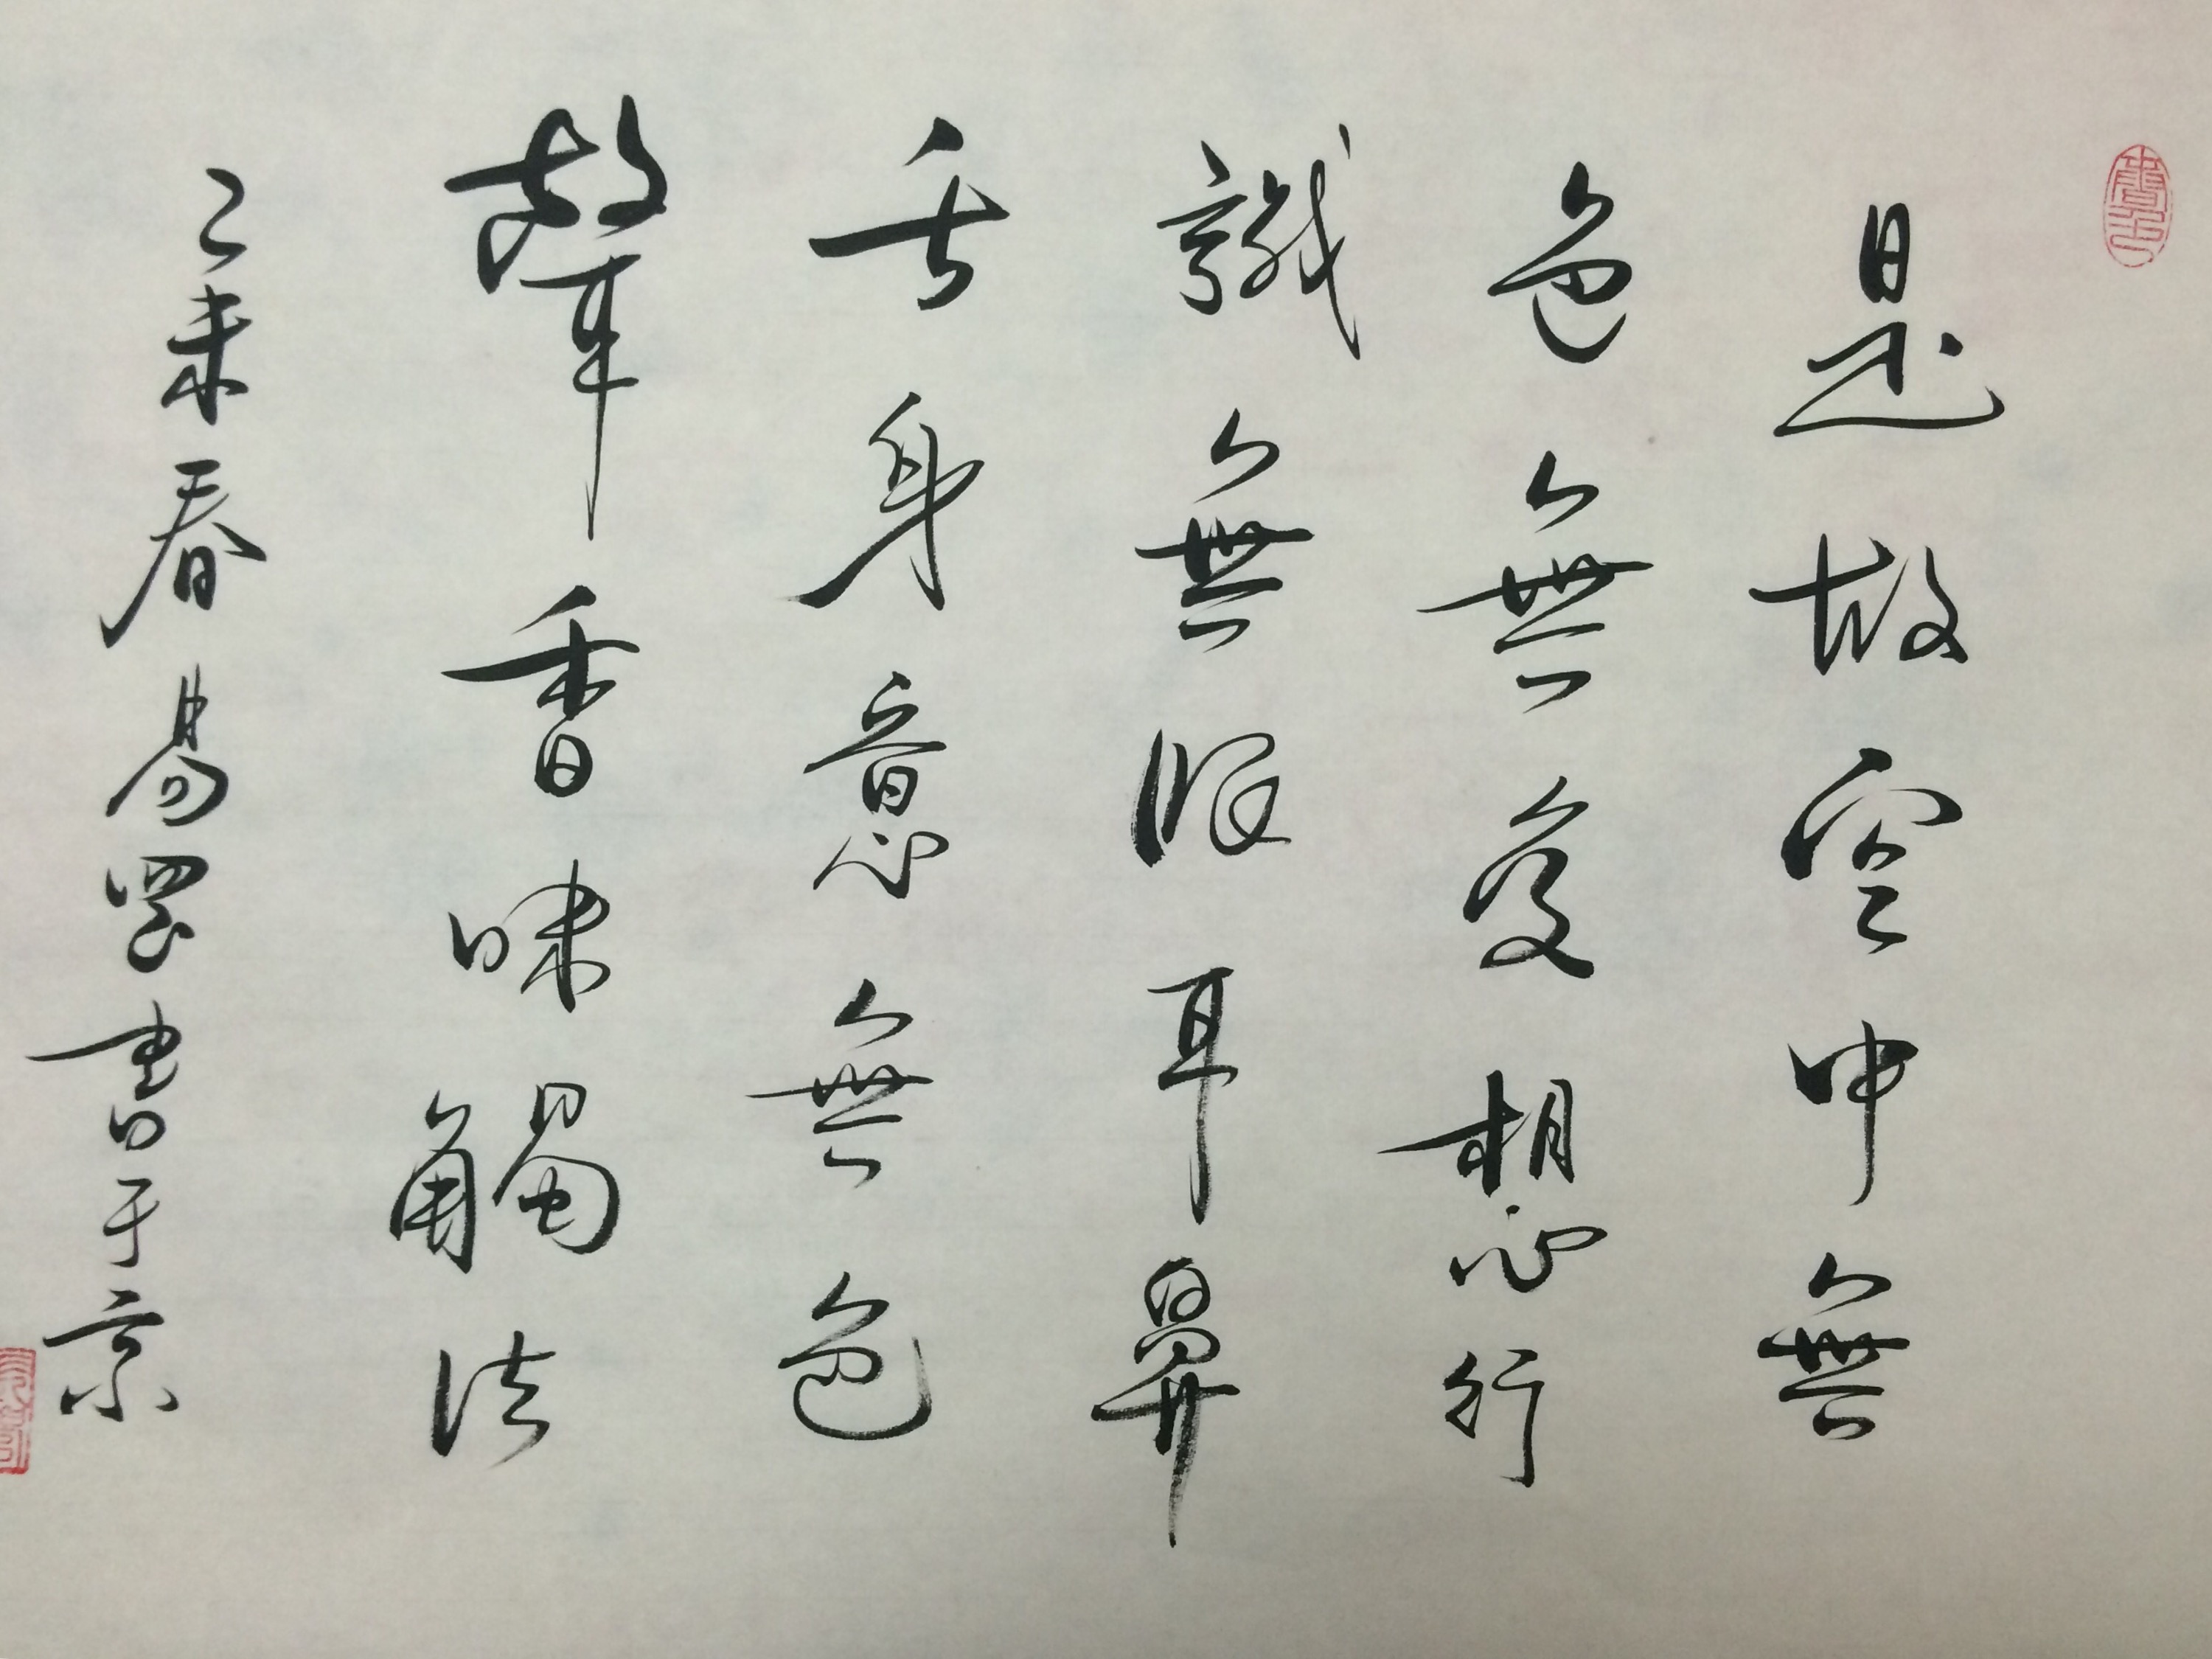 是故空中無
色無受想行
識無眼耳鼻
舌身意無色
聲香味觸法
乙未春易罡書于京